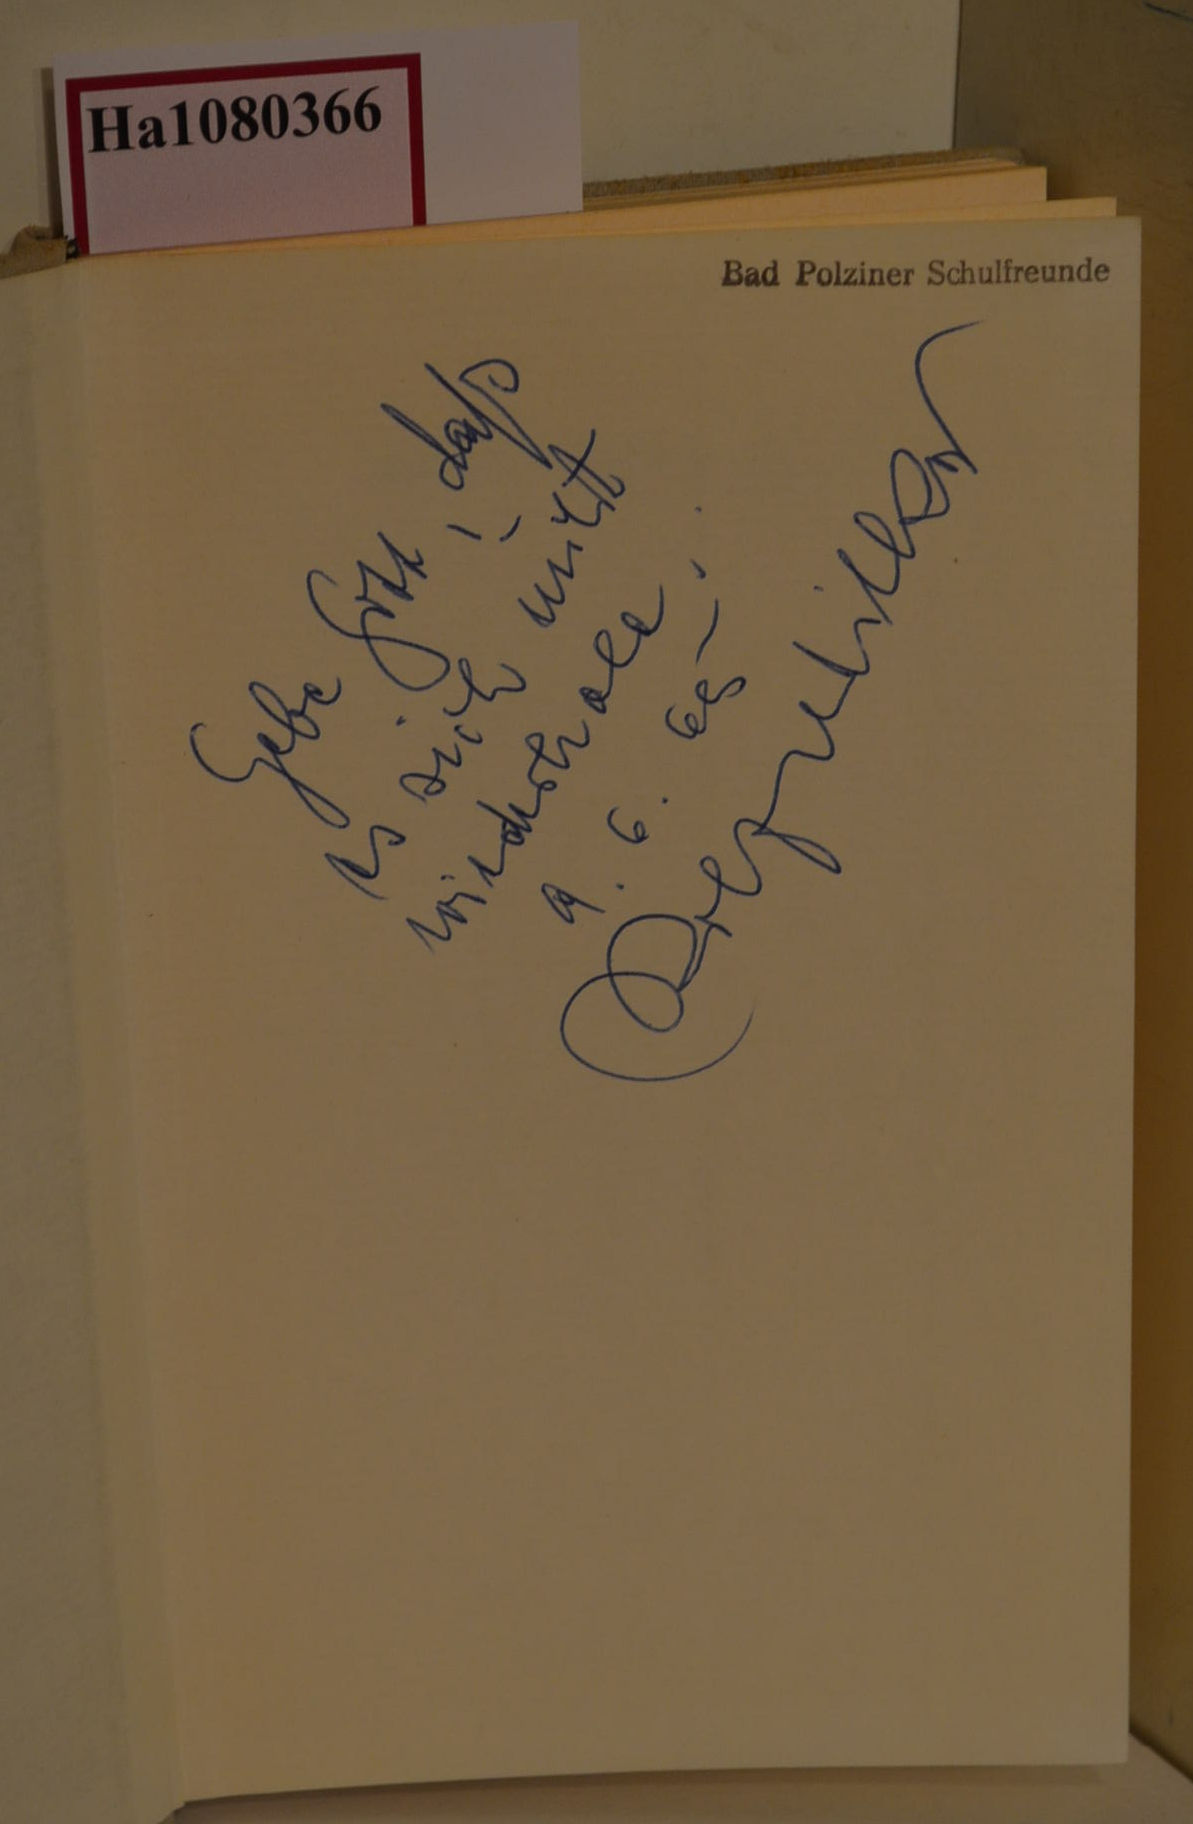 Ha1080366
Bad Polziner Schulfreunde
Gebe Gott, daß
es sich nicht
wiederhole!
9. 6. 68